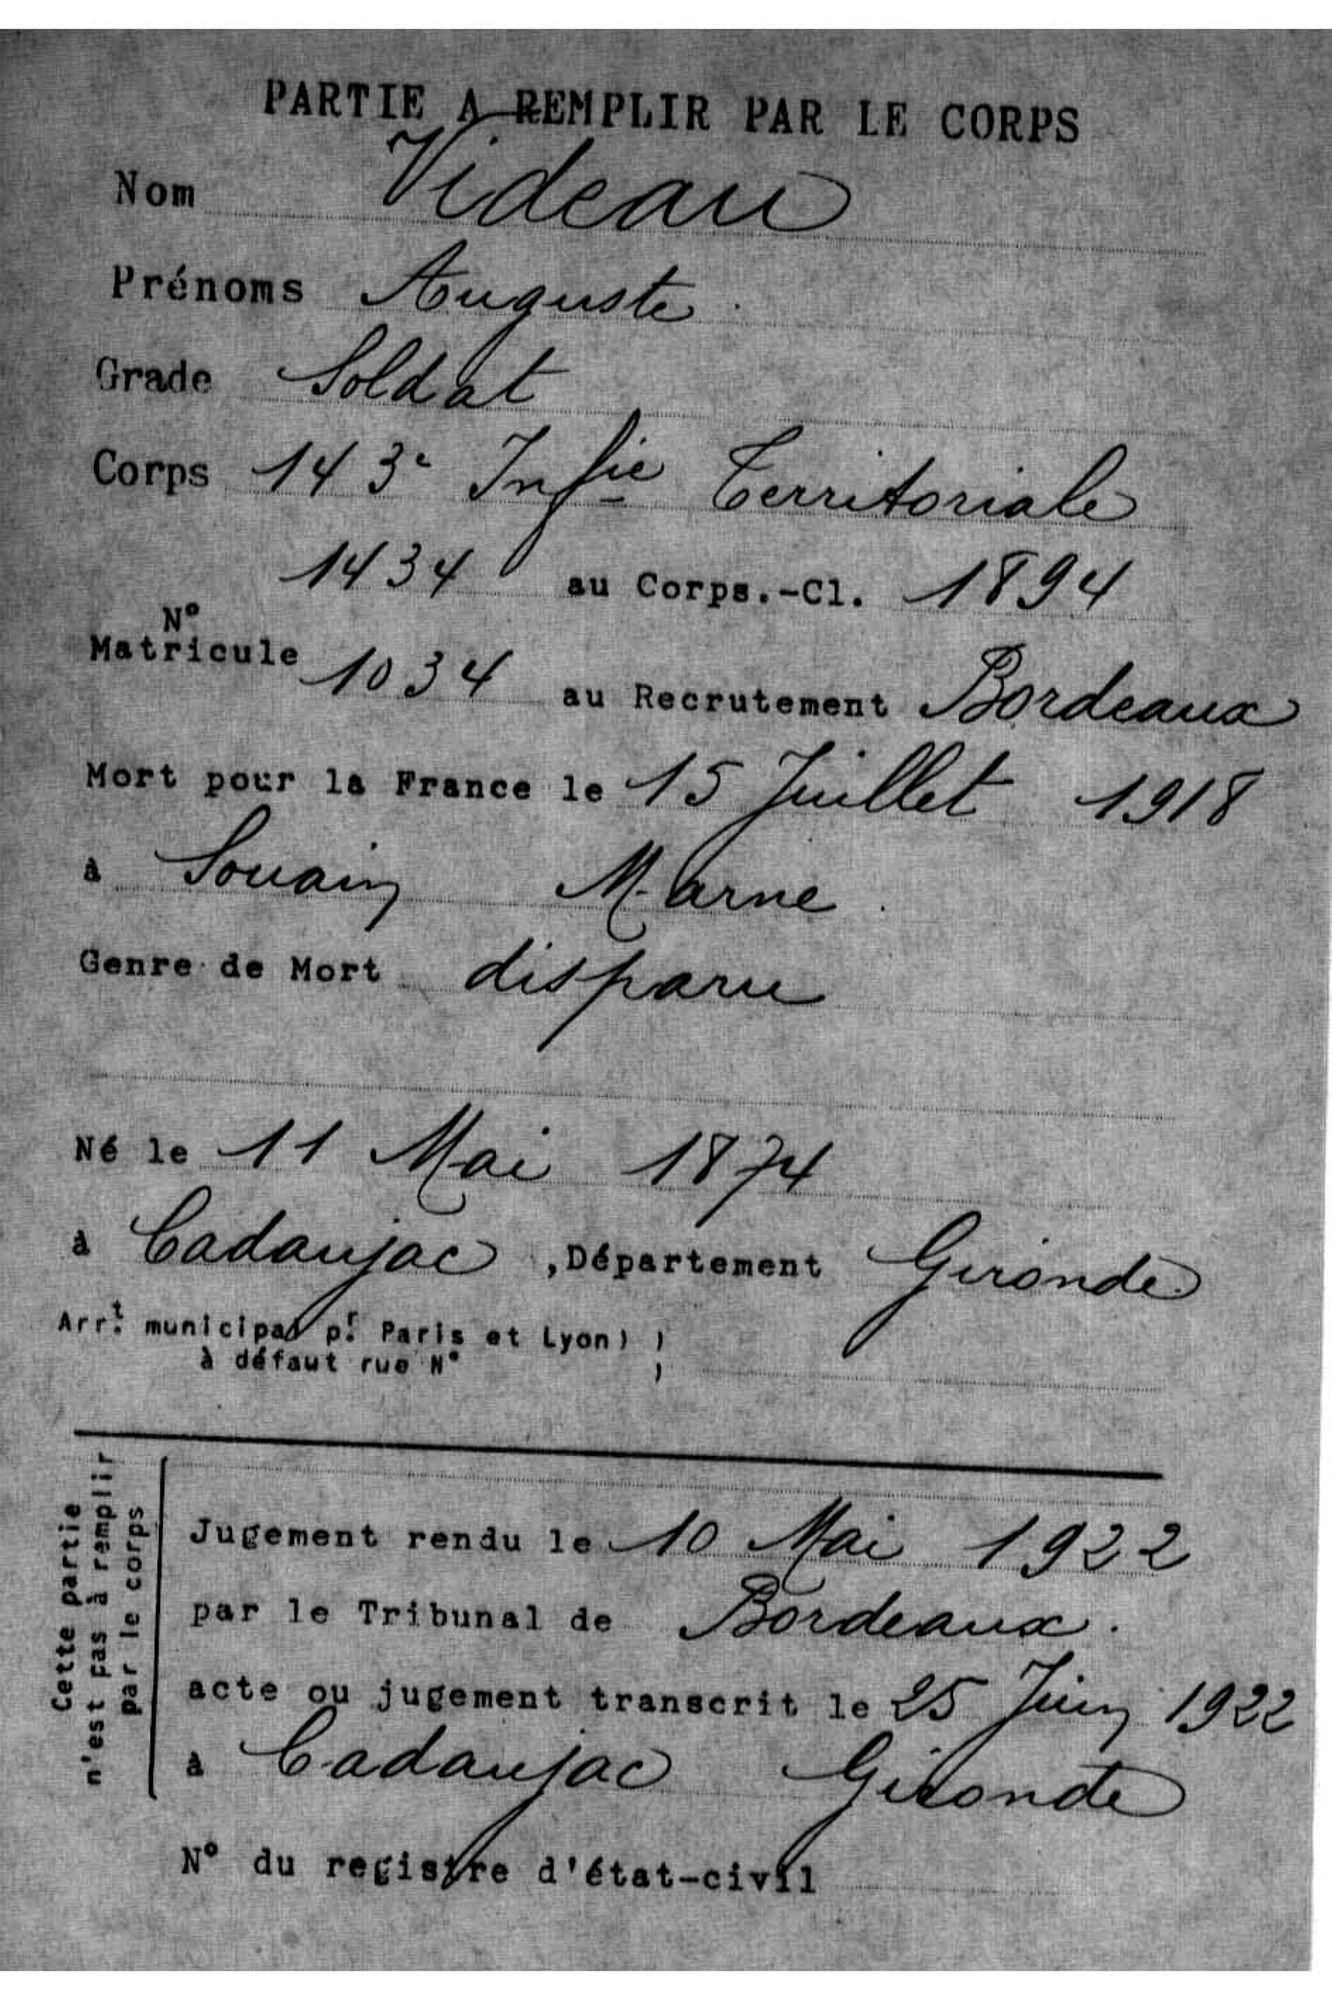 PARTIE A REMPLIR PAR LE CORPS
Nom Videau
Prénoms Auguste.
Grade Soldat
Corps 143e Infie Territoriale
1434 au Corps.-Cl. 1894
N°
Matricule 1034 au Recrutement Bordeaux
Mort pour la France le 15 Juillet 1918
à Souain Marne.
Genre de Mort disparu
Né le 11 Mai 1874
à Cadaujac ,Département Gironde
Arrt. municipal pr. Paris et Lyon) )
à défaut rue N° )
Cette partie
n'est pas à remplir
par le corps
Jugement rendu le 10 Mai 1922
par le Tribunal de Bordeaux.
acte ou jugement transcrit le 25 Juin 1922
à Cadaujac Gironde
N° du registre d'état-civil